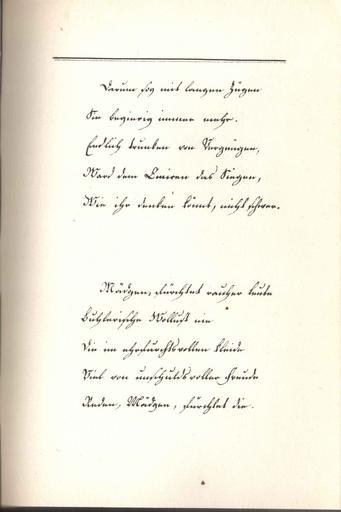 Darum sog mit langen Zügen
Sie begierig immer mehr.
Endlich trunken von Vergnügen,
Ward dem Lmiren das Siegen,
Wie ihr denken könnt, nicht schwer.
Mädgen, fürchtet rauher Leute
Buhlerische Wollust nie
Die im ehrfurchtsvollen Kleide
Viel von unschuldsvoller Freude
Reden, Mädgen, fürchtet die.